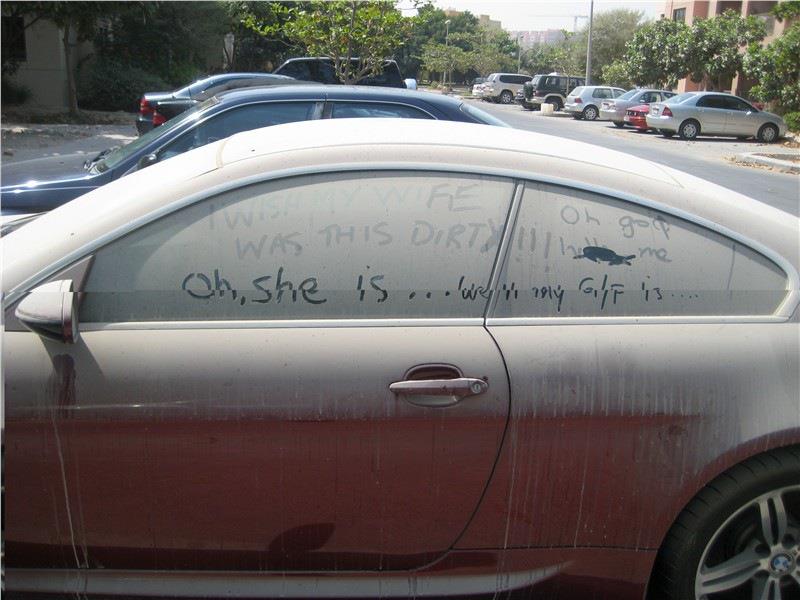 I WISH MY WIFE
WAS THIS DIRTY!!!
Oh god
me
Oh, she is ... well my G/F is ....